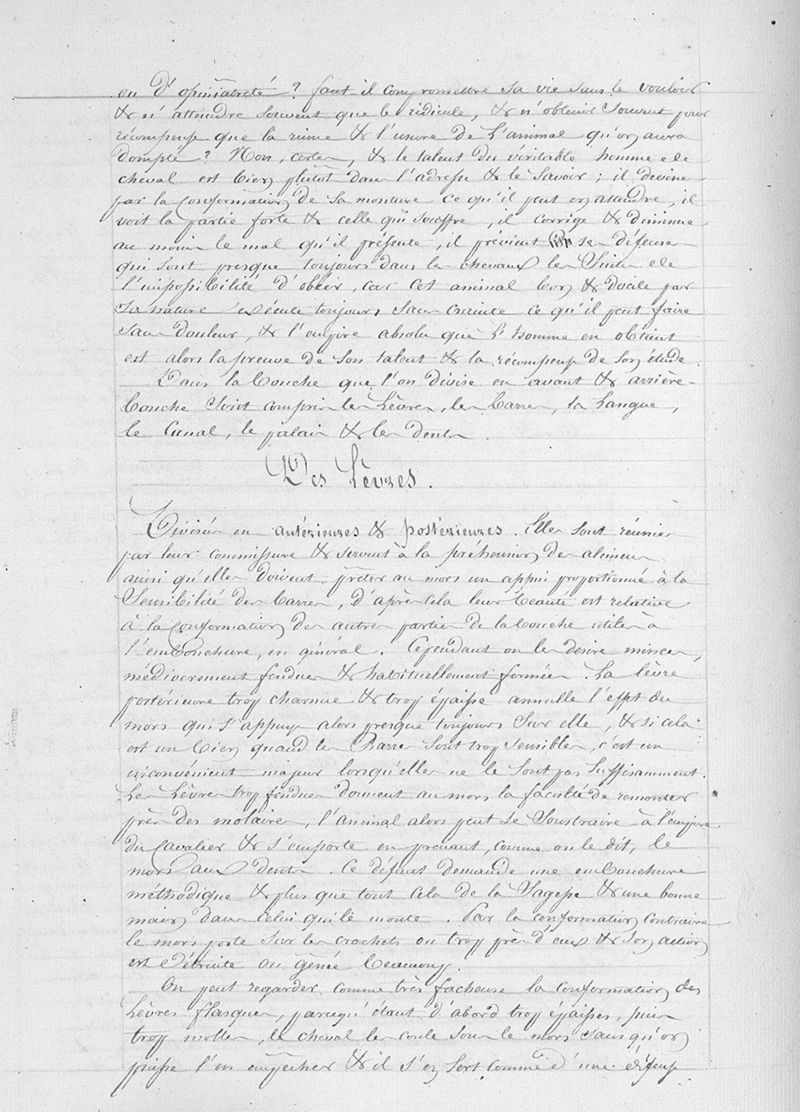 ou d'opiniatreté ? faut-il compromettre sa vie sans le vouloir
& n'attendre souvent que le ridicule, & n'obtenir souvent pour
récompense que la ruine & l'usure de l'animal qu'on aura
dompté ? Non, certes, & le talent du véritable homme de
cheval est bien plutôt dans l'adresse & le savoir ; il devine
par la conformation de sa monture ce qu'il peut en attendre, il
voit la partie forte & celle qui souffre, il corrige & diminue
au moins le mal qu'il présente, il prévient ses défenses
qui sont presque toujours dans les chevaux les suites de
l'impossibilité d'obéir, car cet animal bon & docile par
sa nature exécute toujours sans crainte ce qu'il peut faire
sans douleur, & l'empire absolu que l'homme en obtient
est alors la preuve de son talent & la récompense de son étude.
Dans la bouche que l'on divise en avant & arrière-
bouche sont compris les lèvres, les barres, la langue,
le canal, le palais & les dents
Des Lèvres.
Divisées en antérieures & postérieures. Elles sont réunies
par leur commissure & servent à la préhension des alimens
ainsi qu'elles doivent prêter au mors un appui proportionné à la
sensibilité des barres, d'après cela leur beauté est relative
à la conformation des autres parties de la bouche utiles à
l'embouchure, en général. Cependant on les désire minces,
médiocrement fendues & habituellement fermées. La lèvre
postérieure trop charnue & trop épaisse annulle l'effet du
mors qui s'appuye alors presque toujours sur elle, & si cela
est un bien quand les Barres sont trop sensibles, c'est un
inconvénient majeur lorsqu'elles ne le sont pas suffisamment.
Les lèvres trop fendues donnent au mors la faculté de remonter
près des molaires, l'animal alors peut se soustraire à l'empire
du Cavalier & s'emporte en prenant, comme on le dit, le
mors aux dents. Ce défaut demande une embouchure
méthodique & plus que tout cela de la sagesse & une bonne
main dans celui qui le monte. Par la conformation contraire
le mors porte sur les crochets ou trop près d'eux & son action
est détruite ou gênée beaucoup.
On peut regarder comme très facheuse la conformation des
lèvres flasques, parcequ'étant d'abord trop épaisses, puis
trop molles, le cheval les coule sous le mors sans qu'on
puisse l'en empêcher & il s'en sert comme d'une défense